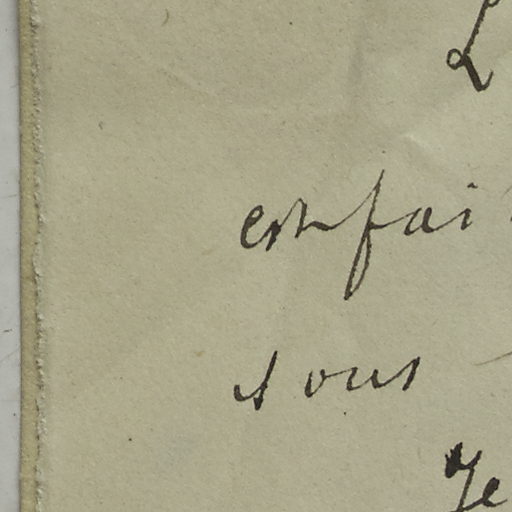 L
est fai
sous
Je